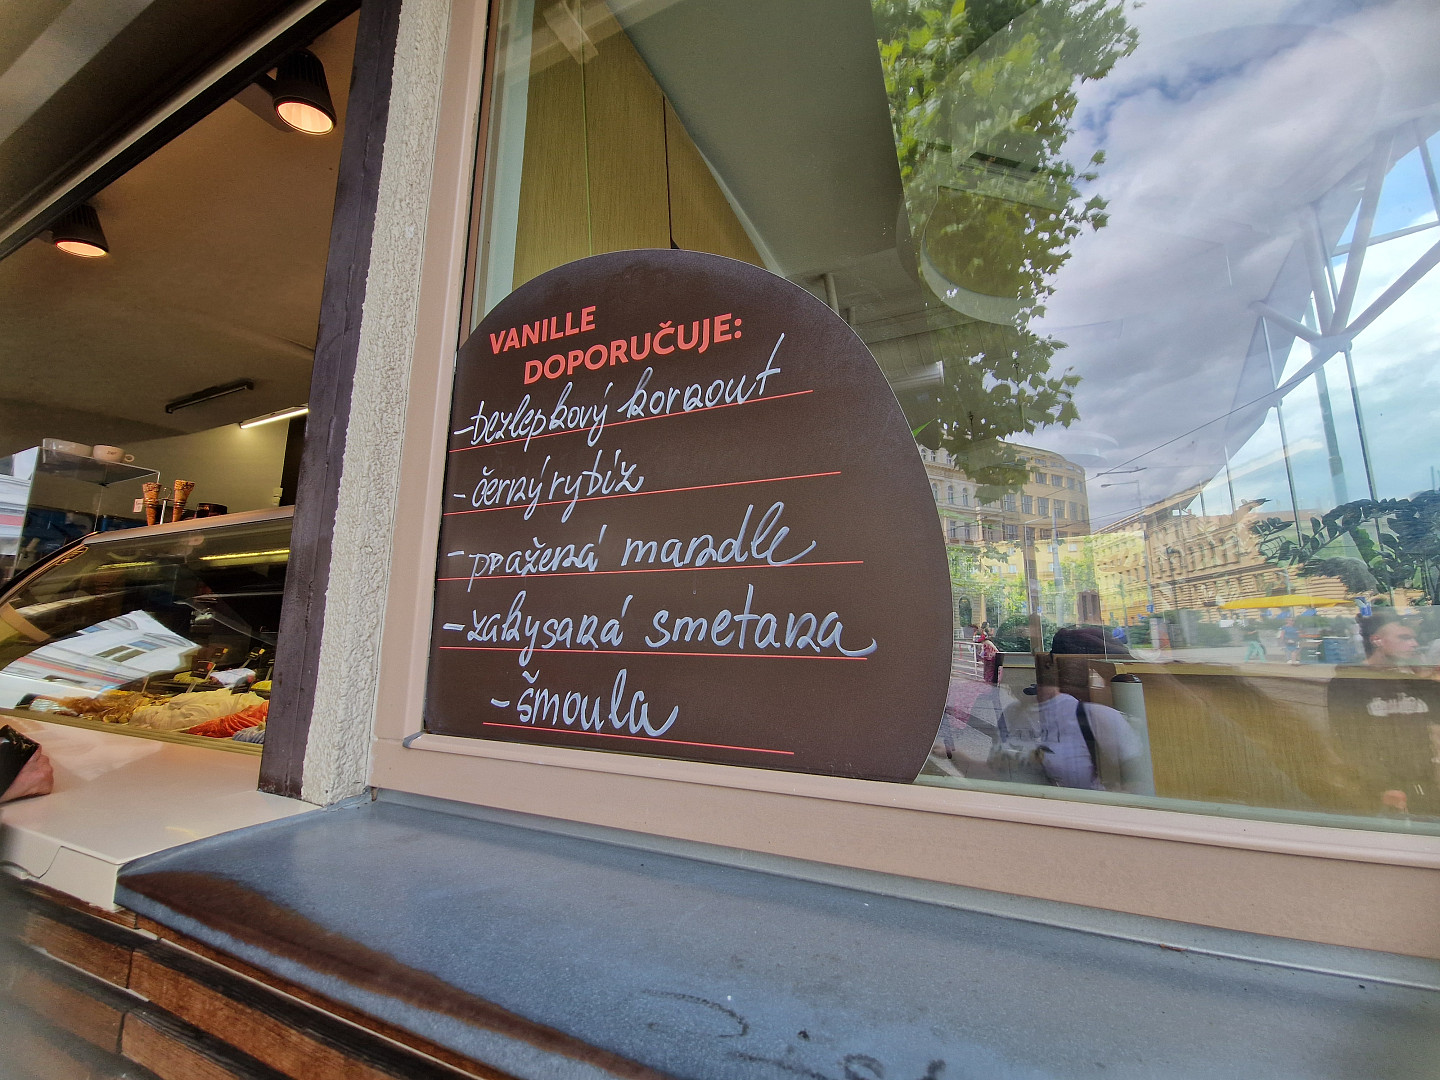 VANILLE
DOPORUČUJE:
-bezlepkový kornout
- černý rybíz
- pražená mandle
- zakysaná smetana
- šmoula